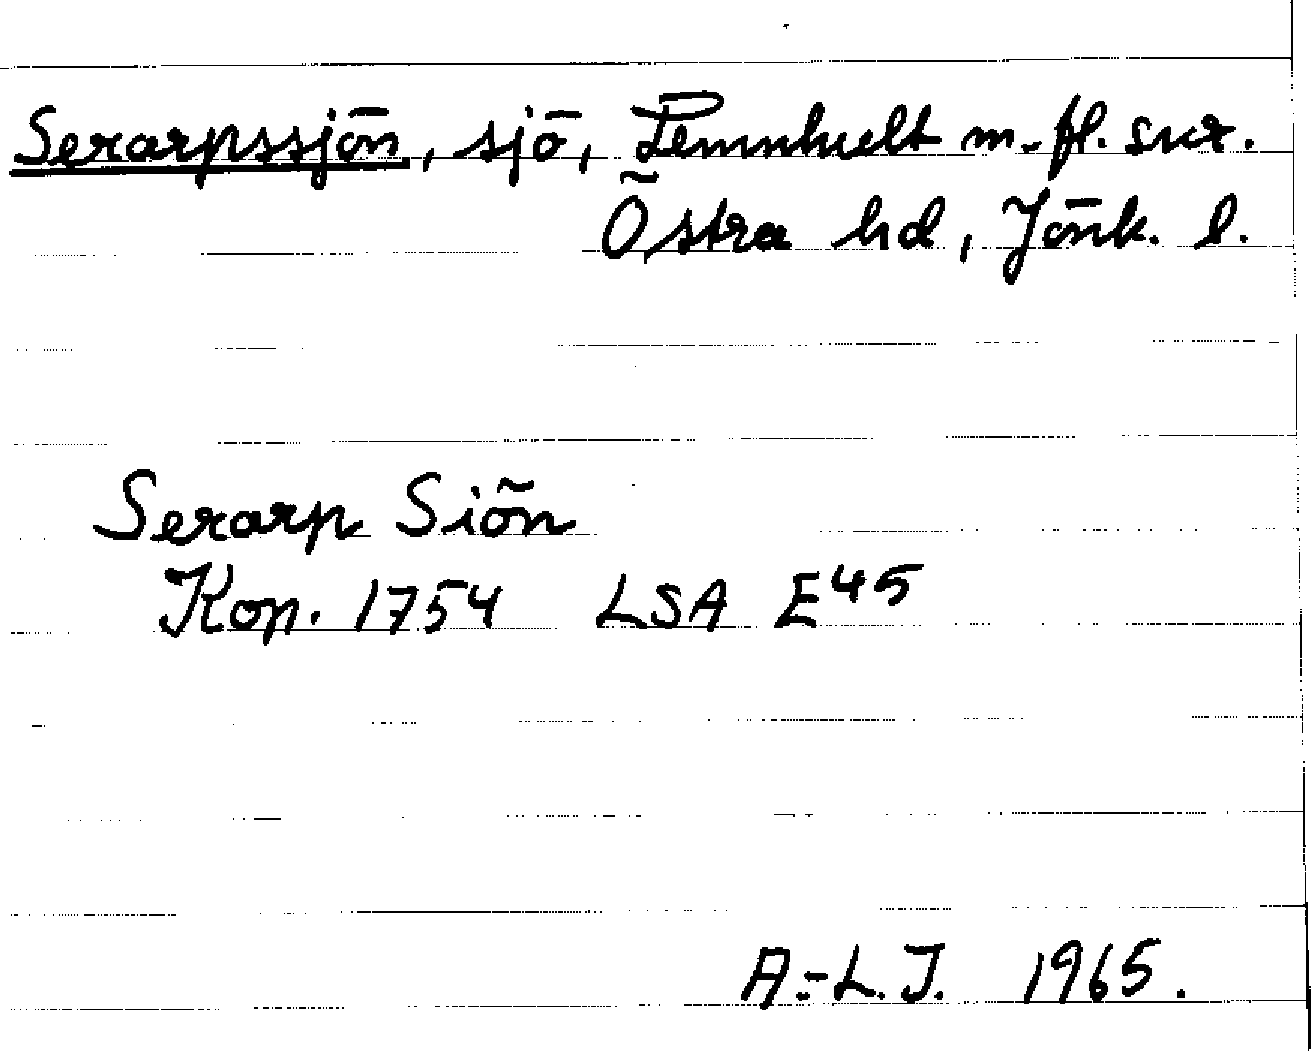 Serarpssjön, sjö, Lemnhult m.fl. snr.
Östra hd, Jönk. l.
Serarp Siön
Kop. 1754 LSA E45
A.-L.J. 1965.